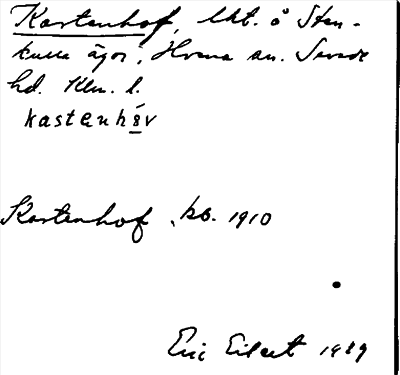 Kastenhof, lht. å Sten-
kulla ägor, Hvena sn. Sevede
hd. Klm. l.
kastenhåv
Kastenhof, kb. 1910
Eric Eilert 1989